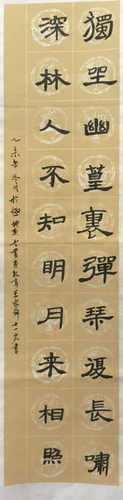 獨坐幽篁裏彈琴復長嘯
深林人不知明月来相照
乙未年冬月於